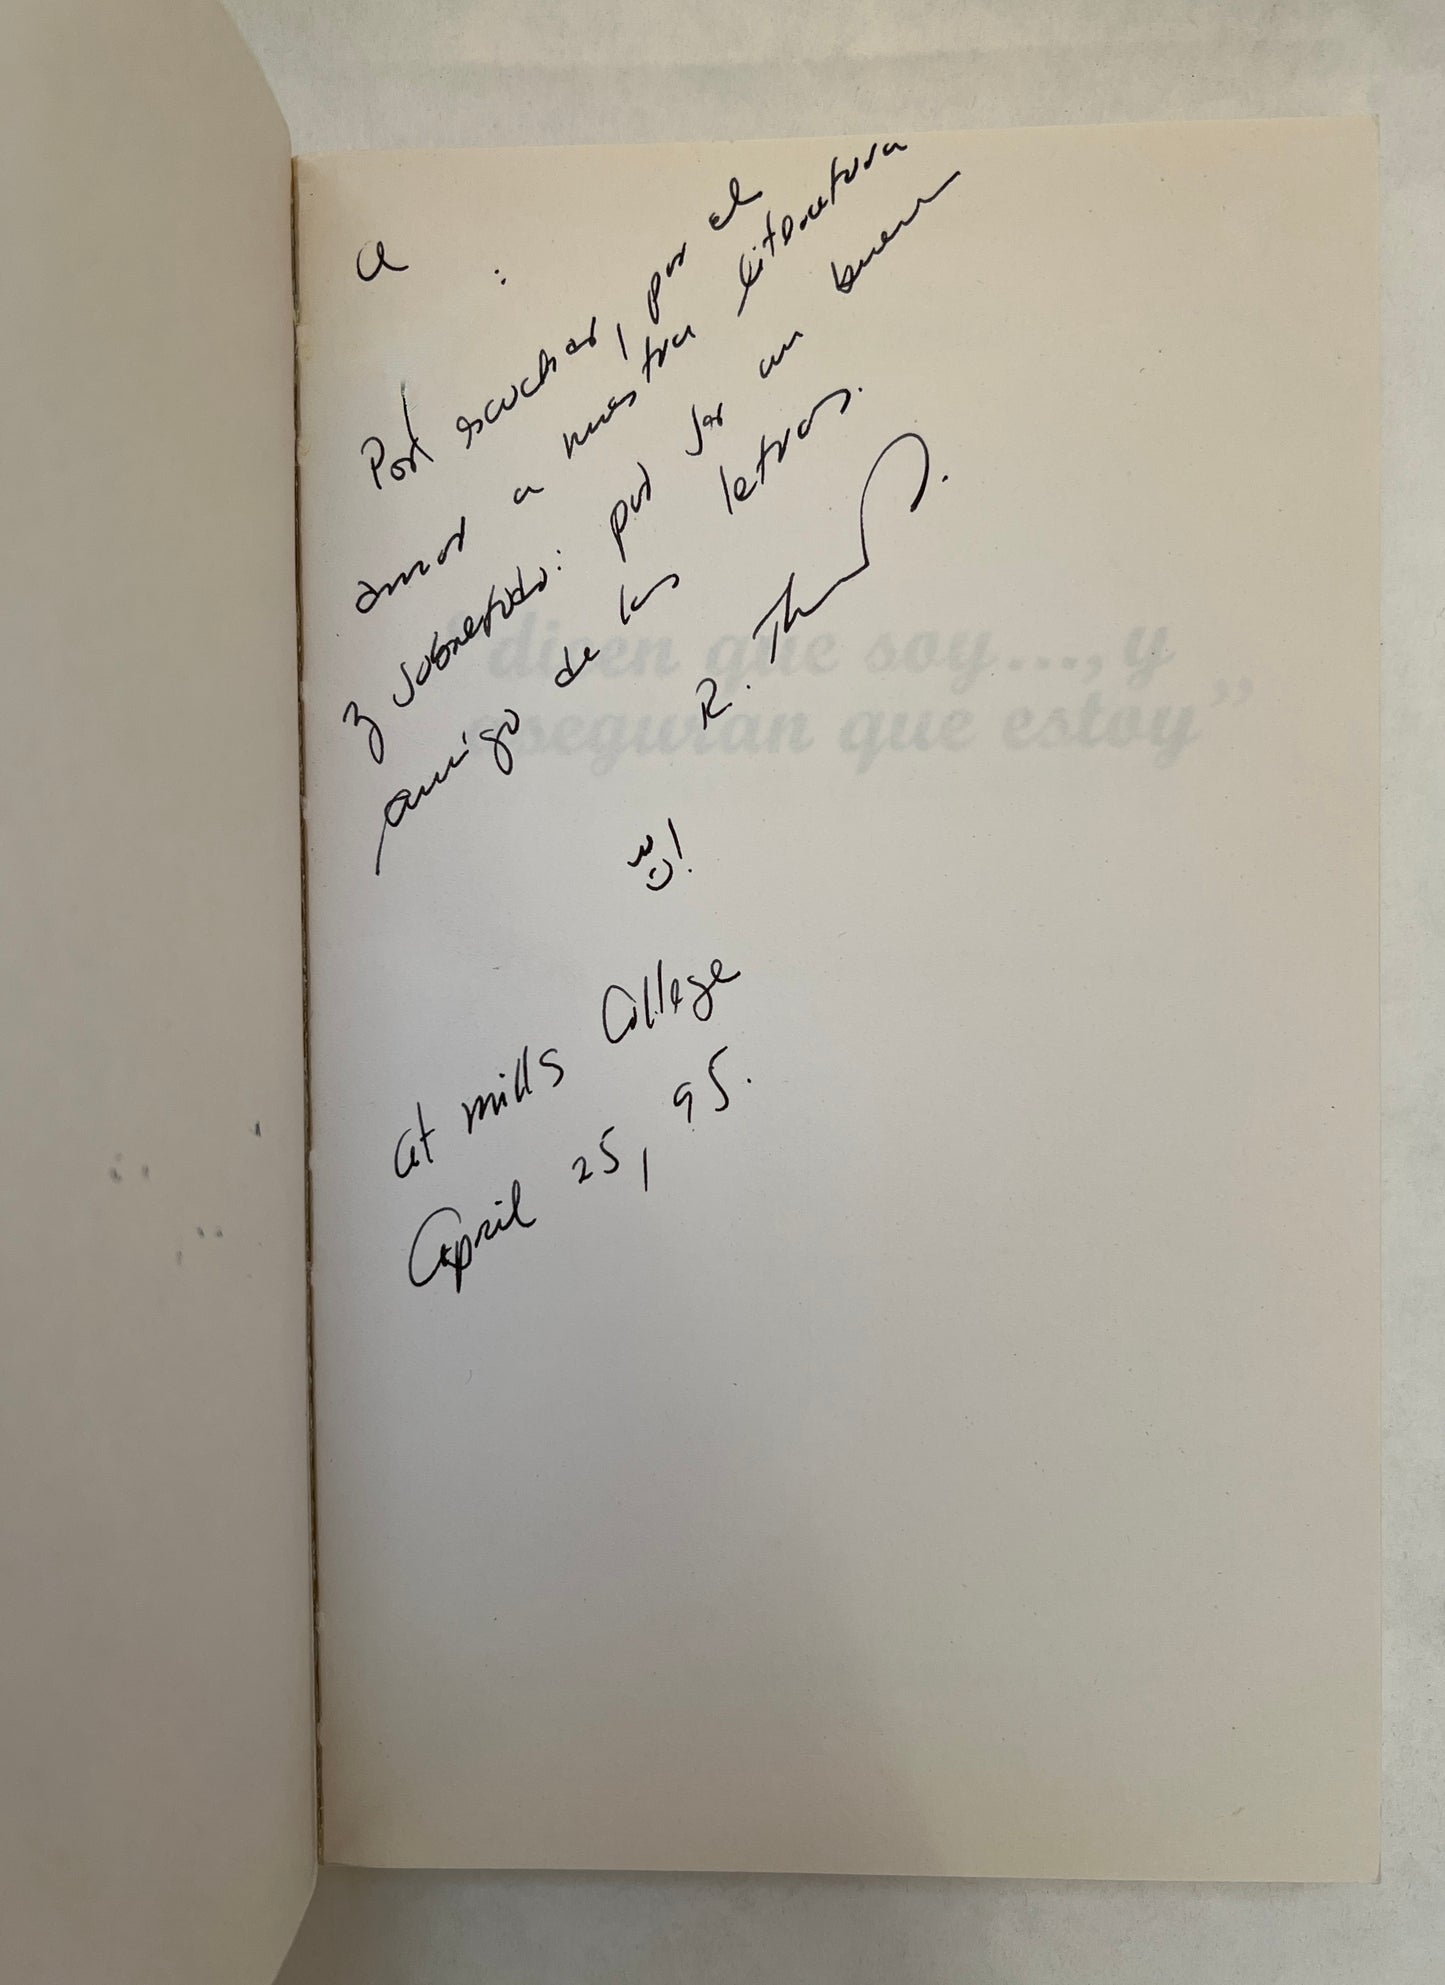 A :
Por escuchar, por el
amor a nuestra literatura
y sobretodo: por ser un buen
amigo de las letras.
R.
!
at Mills College
April 25, 95.
"dicen que soy..., y
aseguran que estoy"